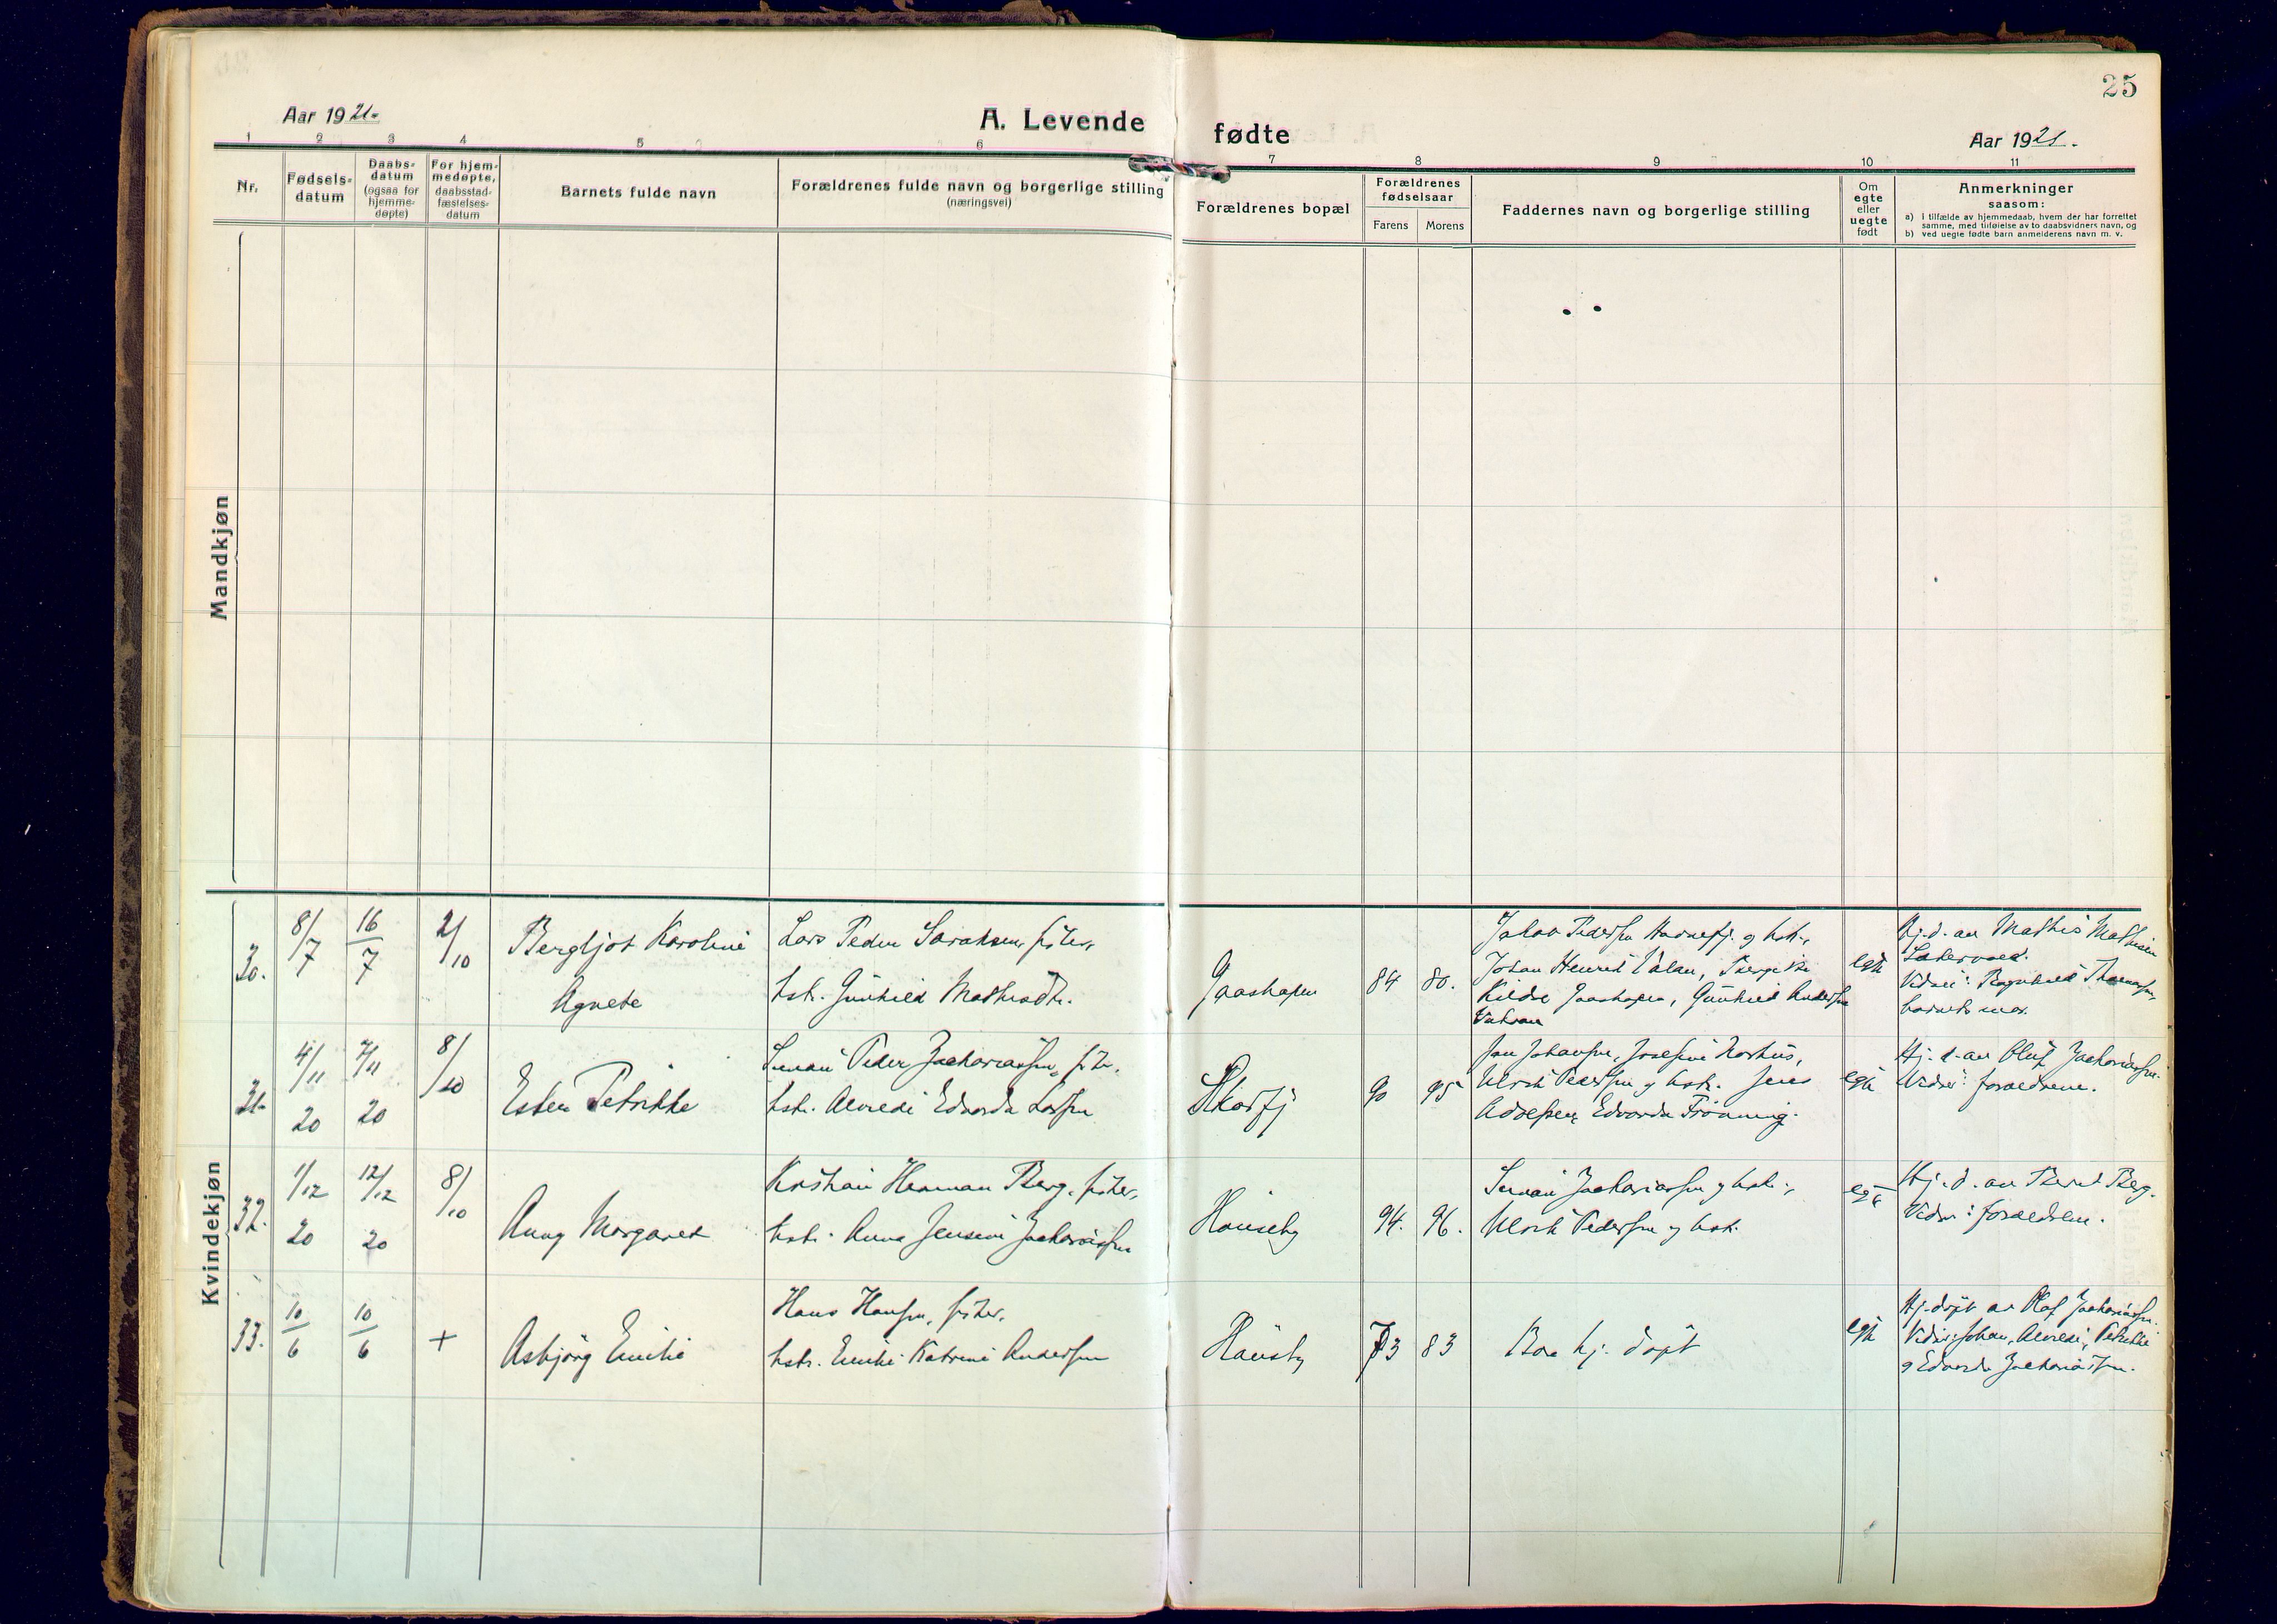 25
Aar 1921.
A. Levende fødte
Aar 1921.
1 2 3 4 5 6 7 8 9 10 11
Nr.
Fødselsdatum
Daabsdatum (ogsaa for hjemmedøpte)
For hjemmedøpte, daabsstadfæstelsesdatum
Barnets fulde navn
Forældrenes fulde navn og borgerlige stilling (næringsvei)
Forældrenes bopæl
Forældrenes fødselsaar
Farens Morens
Faddernes navn og borgerlige stilling
Om egte eller uegte født
Anmerkninger
saasom:
a) i tilfælde av hjemmedaab, hvem der har forrettet
samme, med tilføielse av to daabsvidners navn, og
b) ved uegte fødte barn anmelderens navn m. v.
Mandkjøn
Kvindekjøn
30.
8/7
16/7
2/10
Bergljot Karoline
Agnete
Lars Peder Saraksen, fisker,
hstr. Gunhild Mathisdtr.
Gaashopen
84 80.
Jakob Pedersen g hstr.,
Johan Henrik
Gaashopen, Gunhild Andersen
egte
Hj. d. av Mathis Mathisen
Vidner: Ragnhild Thomassen,
barnets mor.
31.
4/11 20
7/11 20
8/10
Ester Petrikke
Peder Zachariassen, fisker,
hstr. Alvilde Edvarda Larsen
Skarfj
90 95
Jan Johansen, Josefine
Ulrik Pedersen g hstr. Jens
Adolfsen, Edvarda
egte
Hj. d. av Oluf Zachariassen.
Vidner: forældrene.
32.
1/12 20
12/12 20
8/10
Anny Margaret
Kristian Herman Berg, fisker,
hstr. Anna Jensine Zachariassen
Hønseby
94. 96.
Zachariassen g hstr.,
Ulrik Pedersen g hstr.
egte
Hj. d. av Beret Berg.
Vidner: forældrene.
33.
10/6
10/6
+
Asbjørg Emilie
Hans Hansen, fisker,
hstr. Emilie Katrine Andersen
Hønseby
73 83
Bare hj. døpt
egte
Hj. døpt av Olaf Zachariassen.
Vidner: Johan, Alvilde, Petrikke
g Edvarda Zachariassen.